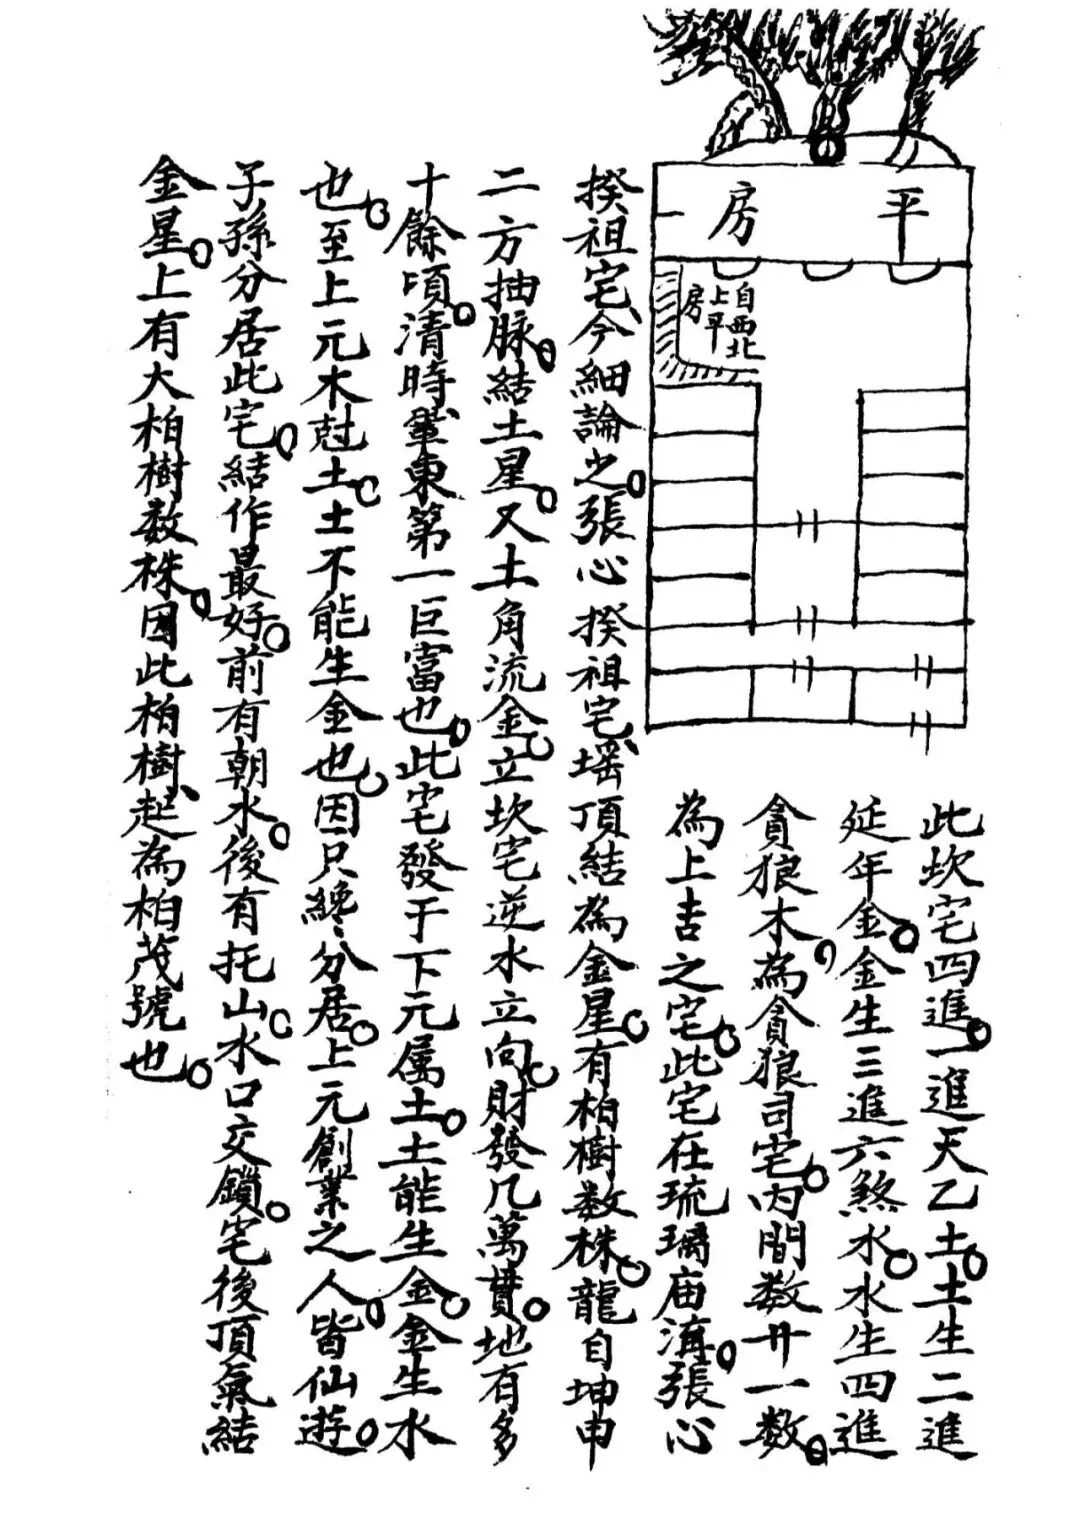 平房
自西北
上平
房
此坎宅四進。一進天乙土。土生二進
延年金。金生三進六煞水。水生四進
貪狼木，為貪狼司宅。内間数廿一数。
為上吉之宅。此宅在琉璃庙溝。張心
揆祖宅、今細論之。張心揆祖宅、頂結為金星。有柏樹数株。龍自坤申
二方抽脉。結土星。又土角流金。立坎宅逆水立向。財發几萬貫。地有多
十餘頃。清時鞏東第一巨富也。此宅發于下元属土。土能生金。金生水
也。至上元木尅土。土不能生金也。因只纔分居。上元創業之人皆仙遊。
子孫分居此宅。結作最好。前有朝水。後有托山。水口交鎖。宅後頂氣結
金星。上有大柏樹数株。因此柏樹、起為柏茂號也。